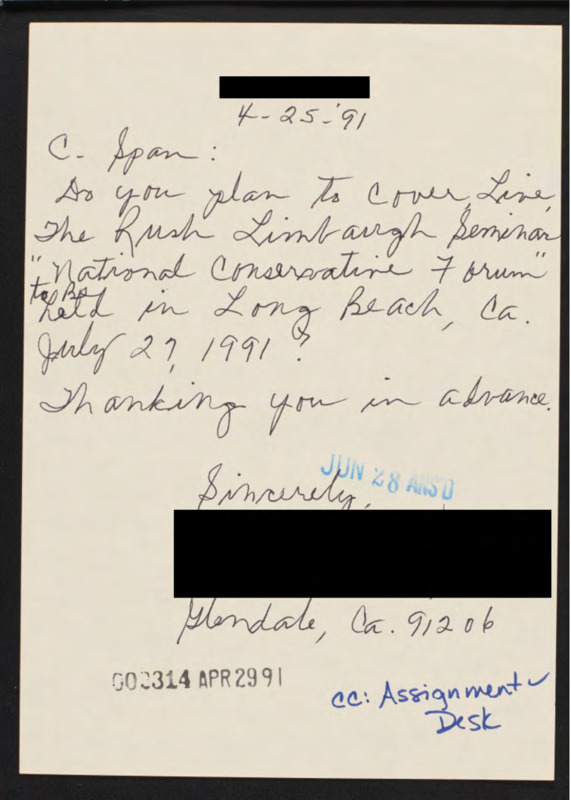 4-25-'91
C-Span:
Do you plan to cover, Live,
The Rush Limbaugh Seminar
"National Conservative Forum"
to Be
held in Long Beach, Ca.
July 27, 1991?
Thanking you in advance.
JUN 28 ANS'D
Sincerely,
Glendale, Ca. 91206
002314 APR 29 91
cc: Assignment ✓
Desk